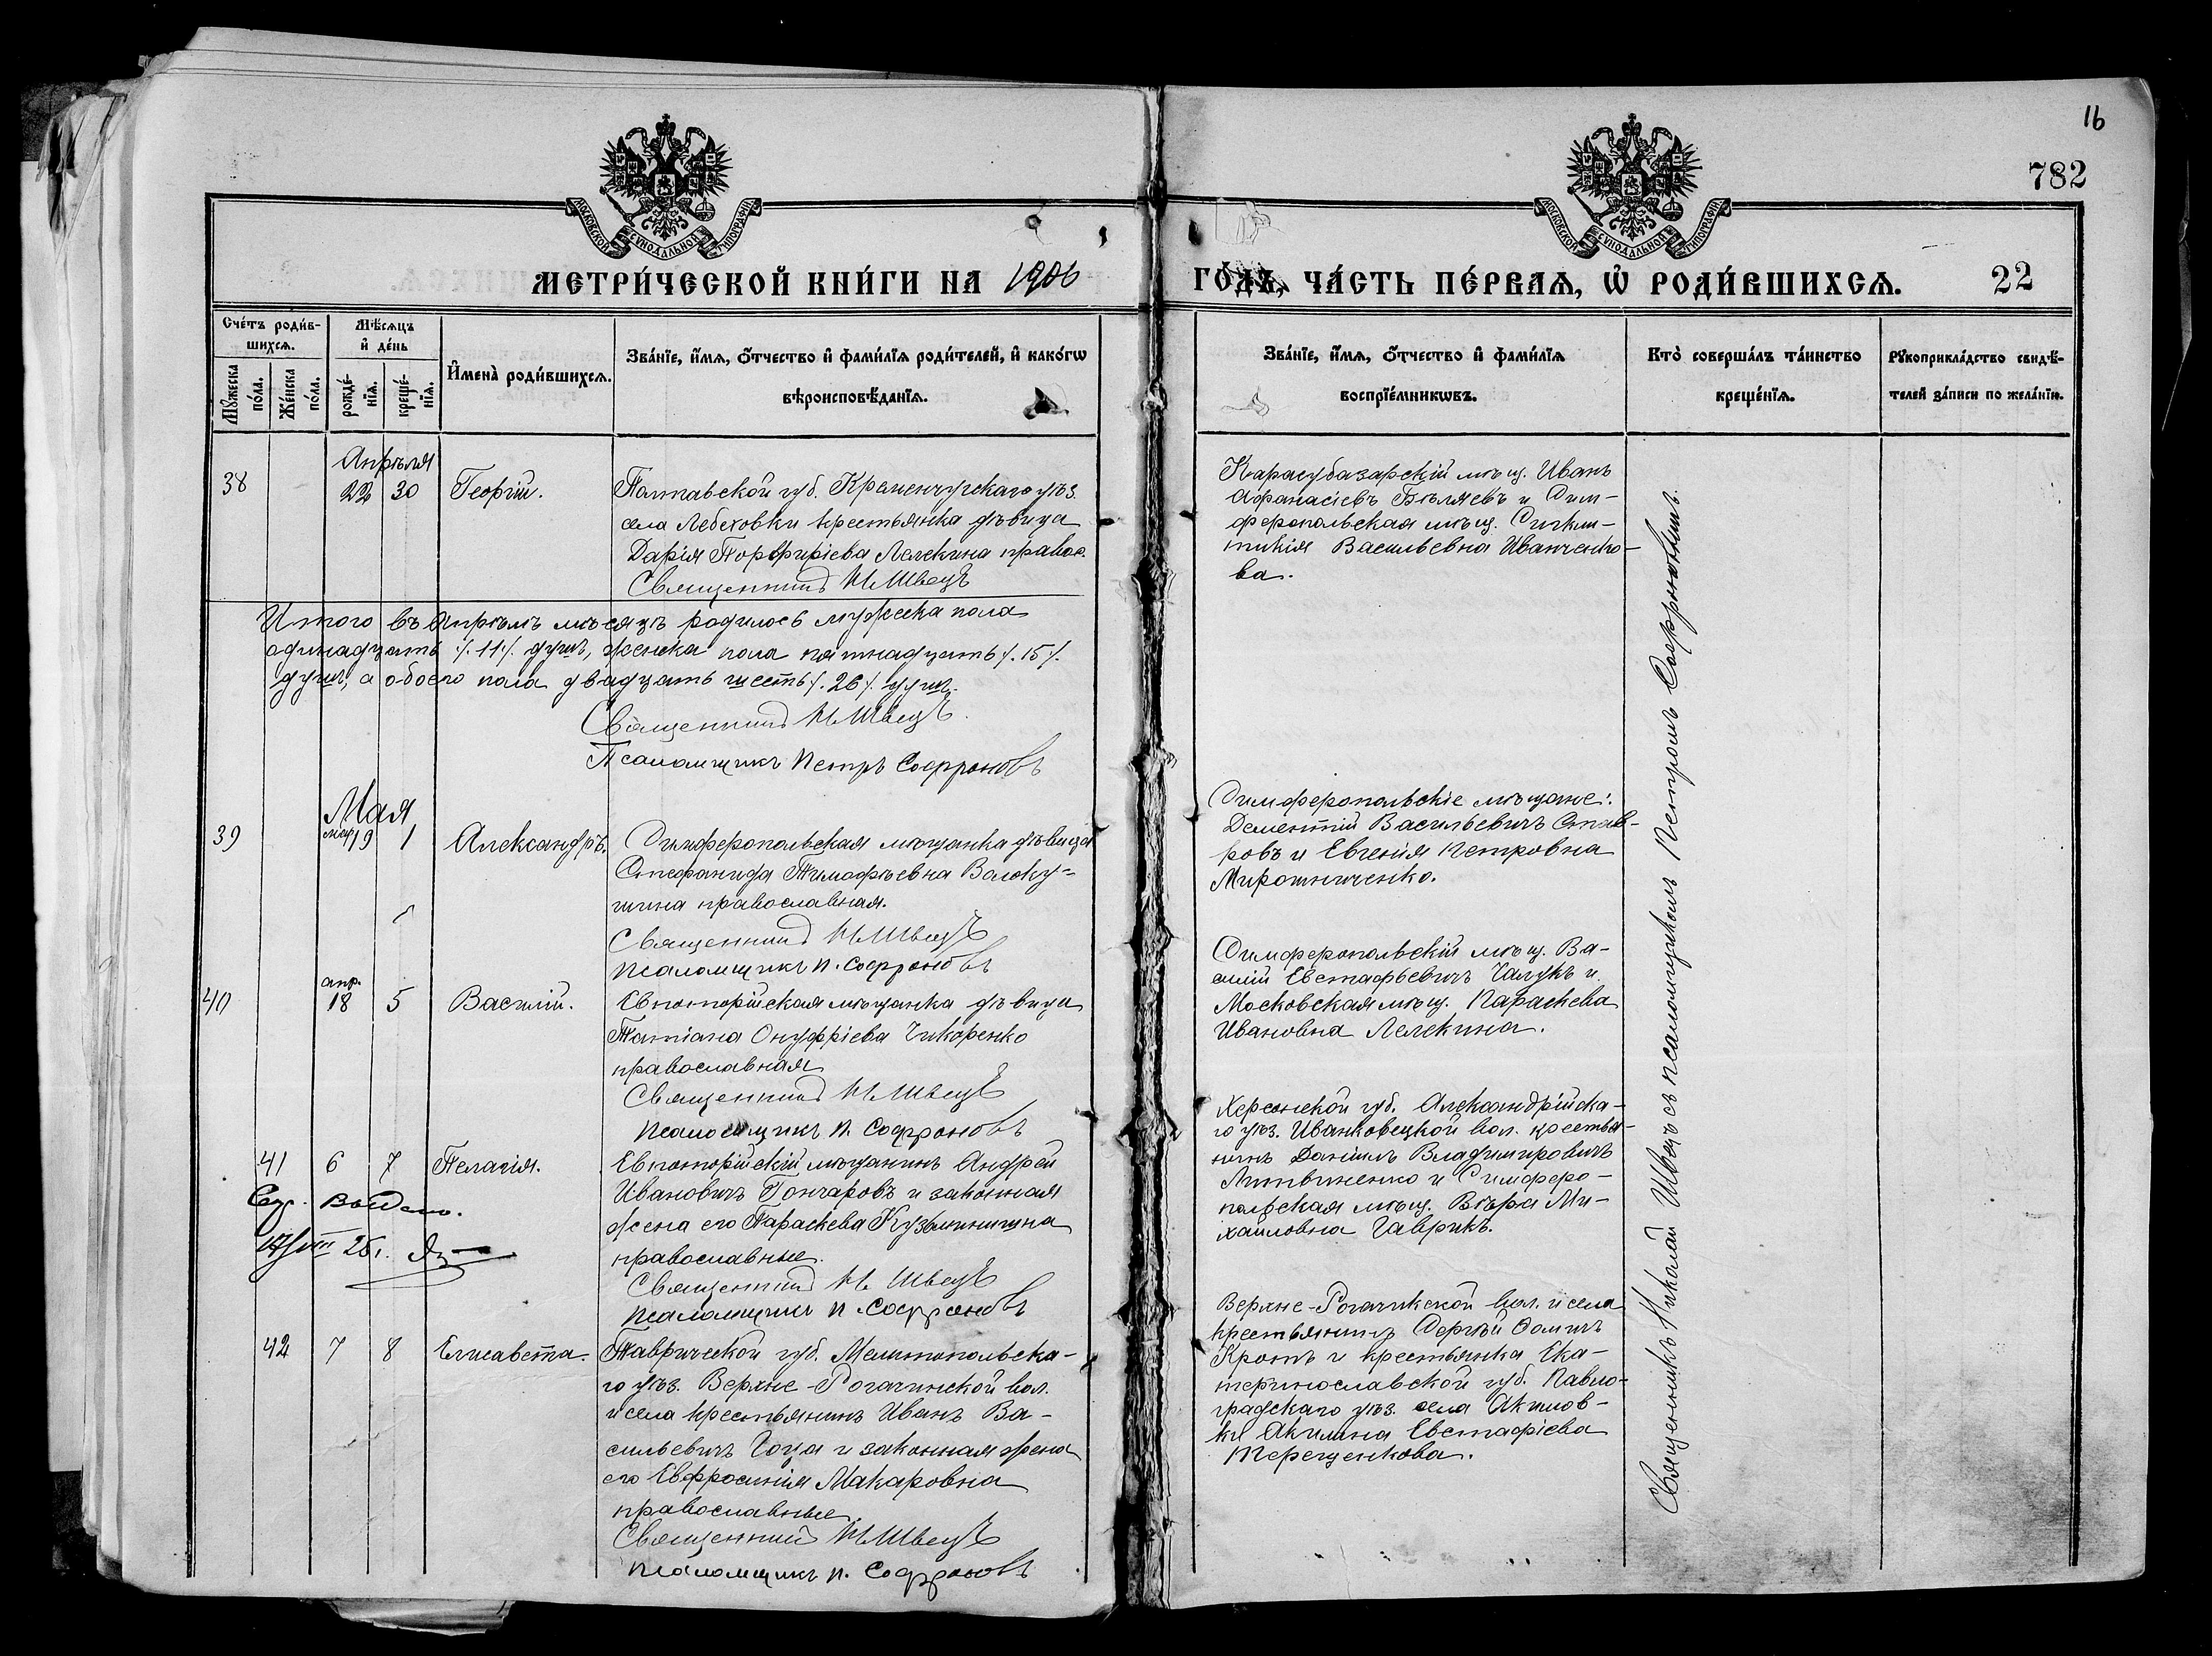 16
782
МОСКОВСКОЙ СѴНОДАЛЬНОЙ ТИПОГРАФІИ
МОСКОВСКОЙ СѴНОДАЛЬНОЙ ТИПОГРАФІИ
МЕТРИ́ЧЕСКОЙ КНИ́ГИ НА 1906
ГО́ДЪ, ЧА́СТЬ ПЕ́РВАѦ, Ѽ РОДИ́ВШИХСѦ. 22
Сче́тъ роди́в-
шихсѧ.
Мꙋ́жеска по́ла.
Же́нска по́ла.
Мѣ́сѧцъ
и҆ де́нь
рожде́-
нїѧ.
креще́-
нїѧ.
И҆мена̀ роди́вшихсѧ.
Зва́нїе, и҆́мѧ, ѻ҆́тчество и҆ фами́лїѧ роди́телей, и҆ како́гѡ
вѣроисповѣ́данїѧ.
Зва́нїе, и҆́мѧ, ѻ҆́тчество и҆ фами́лїѧ
воспрїе́мникѡвъ.
Кто̀ соверша́лъ та́инство
креще́нїѧ.
Рꙋкоприкла́дство свидѣ́-
телей за́писи по жела́нїю.
Апрѣля
38 22 30 Георгій.
Полтавской губ. Кременчугскаго уѣз.
села Лебеховки крестьянка дѣвица
Дарія Порфиріева Лелекина правос.
Священникъ Н. Швецъ
Карасубазарскій мѣщ. Иванъ
Афанасіевъ Бѣляевъ и Сим-
феропольская мѣщ. Синкли-
тикія Васильевна Иванченко-
ва.
Итого въ Апрѣлѣ мѣсяцѣ родилось мужеска пола
одинадцать ./. 11 ./. душъ, женска пола пятнадцать ./. 15 ./.
душъ, а обоего пола двадцать шесть ./. 26 ./. душъ.
Священникъ Н. Швецъ.
Псаломщикъ Петръ Софроновъ
Мая
39 19 1 Александръ.
Симферопольская мѣщанка дѣвица
Стефанида Тимофѣевна Волоку-
шина православная.
Священникъ Н. Швецъ
Псаломщикъ П. Софроновъ
Симферопольскіе мѣщане:
Дементій Васильевичъ Став-
ровъ и Евгенія Петровна
Мирошниченко.
апр.
40 18 5 Василій.
Евпаторійская мѣщанка дѣвица
Татіана Онуфріева Чикоренко
православная
Священникъ Н. Швецъ
Псаломщикъ П. Софроновъ
Симферопольскій мѣщ. Ва-
силій Евстафьевичъ Чалукъ и
Московская мѣщ. Параскева
Ивановна Лелекина.
41 6 7 Пелагія.
Евпаторійскій мѣщанинъ Андрей
Ивановичъ Гончаровъ и законная
жена его Параскева Кузьминишна
православные.
Священникъ Н. Швецъ
Псаломщикъ П. Софроновъ
Выдано.
Херсонской губ. Александрійска-
го уѣз. Иванковецкой вол. крестья-
нинъ Даніилъ Владимировичъ
Литвиненко и Симферо-
польская мѣщ. Вѣра Ми-
хайловна Гаврикъ.
42 7 8 Елисавета.
Таврической губ. Мелитопольска-
го уѣз. Верхне-Рогачинской вол.
и села крестьянинъ Иванъ Ва-
сильевичъ Гоца и законная жена
его Евфросинія Макаровна
православные.
Священникъ Н. Швецъ
Псаломщикъ П. Софроновъ
Верхне-Рогачикской вол. и села
крестьянинъ Сергѣй Фомичъ
Кротъ и крестьянка Ека-
теринославской губ. Павло-
градскаго уѣз. села Акимов-
ки Акилина Евстафіева
Терещенкова.
Священникъ Николай Швецъ съ псаломщикомъ Петромъ Софроновымъ.